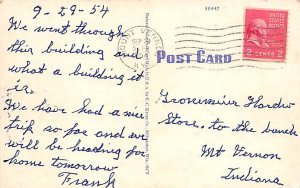 9-29-54
We went through
this building and
what a building it
is.
We have had a nice
trip so far and we
will be heading for
home tomorrow
Frank
30447
POST CARD
2 CENTS 2
Hardw
Store. to the bank
Mt Vernon
Indiana